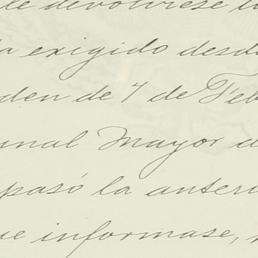 de devolviese l
a exigido desd
den de 7 de Feb
unal Mayor d
pasó la anteri
ue informase,